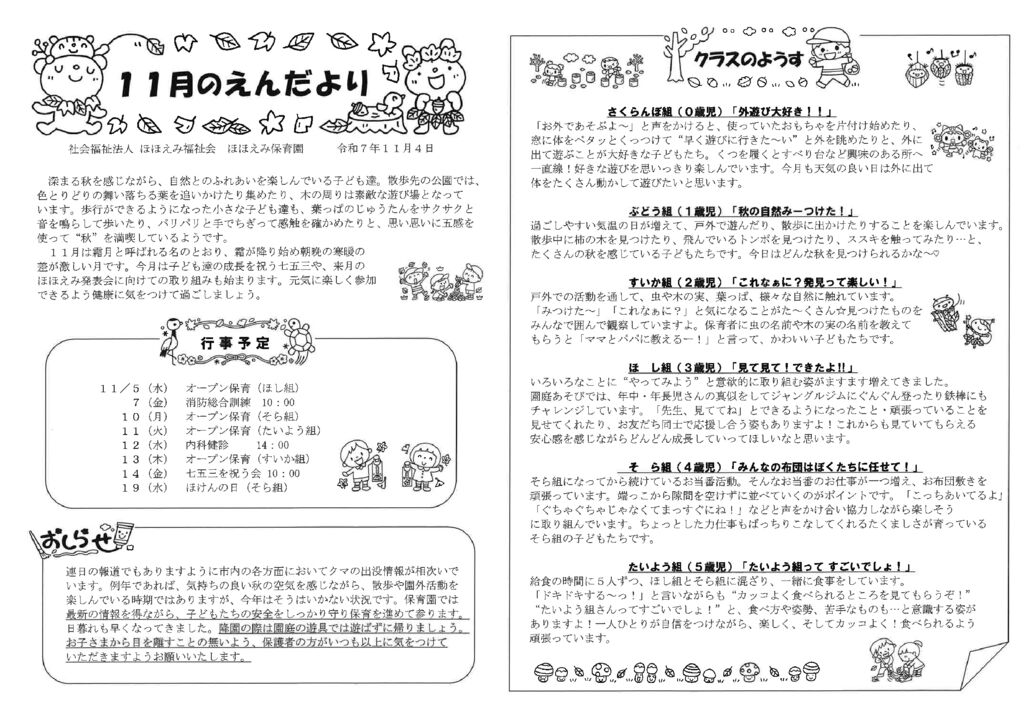 11月のえんだより
社会福祉法人 ほほえみ福祉会　ほほえみ保育園　　令和7年11月4日
深まる秋を感じながら、自然とのふれあいを楽しんでいる子ども達。散歩先の公園では、
色とりどりの舞い落ちる葉を追いかけたり集めたり、木の周りは素敵な遊び場となって
います。歩行ができるようになった小さな子ども達も、葉っぱのじゅうたんをサクサクと
音を鳴らして歩いたり、パリパリと手でちぎって感触を確かめたりと、思い思いに五感を
使って“秋”を満喫しているようです。
11月は霜月と呼ばれる名のとおり、霜が降り始め朝晩の寒暖の
差が激しい月です。今月は子ども達の成長を祝う七五三や、来月の
ほほえみ発表会に向けての取り組みも始まります。元気に楽しく参加
できるよう健康に気をつけて過ごしましょう。
行事予定
11／5（水）　オープン保育（ほし組）
7（金）　消防総合訓練　10：00
10（月）　オープン保育（そら組）
11（火）　オープン保育（たいよう組）
12（水）　内科健診　　14：00
13（木）　オープン保育（すいか組）
14（金）　七五三を祝う会 10：00
19（水）　ほけんの日（そら組）
おしらせ
連日の報道でもありますように市内の各方面においてクマの出没情報が相次いで
います。例年であれば、気持ちの良い秋の空気を感じながら、散歩や園外活動を
楽しんでいる時期ではありますが、今年はそうはいかない状況です。保育園では
最新の情報を得ながら、子どもたちの安全をしっかり守り保育を進めて参ります。
日暮れも早くなってきました。降園の際は園庭の遊具では遊ばずに帰りましょう。
お子さまから目を離すことの無いよう、保護者の方がいつも以上に気をつけて
いただきますようお願いいたします。
クラスのようす
さくらんぼ組（0歳児）「外遊び大好き！！」
「お外であそぶよ～」と声をかけると、使っていたおもちゃを片付け始めたり、
窓に体をペタッとくっつけて“早く遊びに行きた～い”と外を眺めたりと、外に
出て遊ぶことが大好きな子どもたち。くつを履くとすべり台など興味のある所へ
一直線！好きな遊びを思いっきり楽しんでいます。今月も天気の良い日は外に出て
体をたくさん動かして遊びたいと思います。
ぶどう組（1歳児）「秋の自然みーつけた！」
過ごしやすい気温の日が増えて、戸外で遊んだり、散歩に出かけたりすることを楽しんでいます。
散歩中に柿の木を見つけたり、飛んでいるトンボを見つけたり、ススキを触ってみたり…と、
たくさんの秋を感じている子どもたちです。今日はどんな秋を見つけられるかな～♡
すいか組（2歳児）「これなぁに？発見って楽しい！」
戸外での活動を通して、虫や木の実、葉っぱ、様々な自然に触れています。
「みつけた～」「これなぁに？」と気になることがた～くさん☆見つけたものを
みんなで囲んで観察していますよ。保育者に虫の名前や木の実の名前を教えて
もらうと「ママとパパに教えるー！」と言って、かわいい子どもたちです。
ほ し組（3歳児）「見て見て！できたよ!!」
いろいろなことに“やってみよう”と意欲的に取り組む姿がますます増えてきました。
園庭あそびでは、年中・年長児さんの真似をしてジャングルジムにぐんぐん登ったり鉄棒にも
チャレンジしています。「先生、見ててね」とできるようになったこと・頑張っていることを
見せてくれたり、お友だち同士で応援し合う姿もありますよ！これからも見ていてもらえる
安心感を感じながらどんどん成長していってほしいなと思います。
そ ら組（4歳児）「みんなの布団はぼくたちに任せて！」
そら組になってから続けているお当番活動。そんなお当番のお仕事が一つ増え、お布団敷きを
頑張っています。端っこから隙間を空けずに並べていくのがポイントです。「こっちあいてるよ」
「ぐちゃぐちゃじゃなくてまっすぐにね！」などと声をかけ合い協力しながら楽しそう
に取り組んでいます。ちょっとした力仕事もばっちりこなしてくれるたくましさが育っている
そら組の子どもたちです。
たいよう組（5歳児）「たいよう組って すごいでしょ！」
給食の時間に5人ずつ、ほし組とそら組に混ざり、一緒に食事をしています。
「ドキドキする～っ！」と言いながらも“カッコよく食べられるところを見てもらうぞ！”
“たいよう組さんってすごいでしょ！”と、食べ方や姿勢、苦手なものも…と意識する姿が
ありますよ！一人ひとりが自信をつけながら、楽しく、そしてカッコよく！食べられるよう
頑張っています。